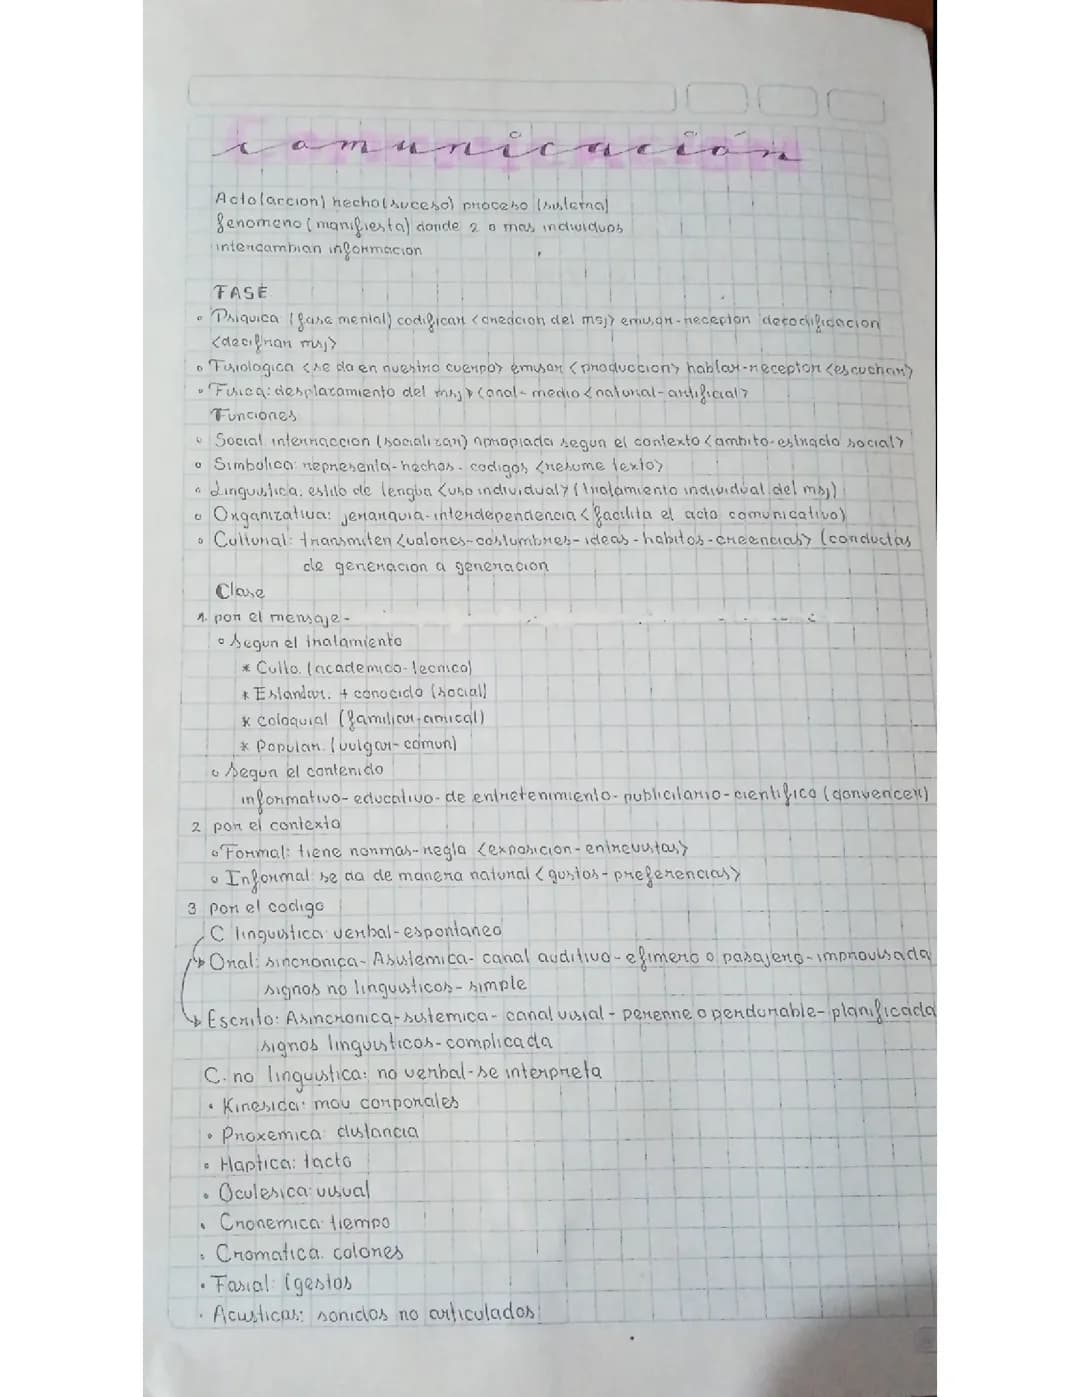 Comunicación
Acto(accion) hecho(suceso) proceso (sistema)
fenomeno (manifiesta) donde 2 o mas individuos
intercambian informacion
FASE
Psiquica (fase mental) codificar <creacion del msj> emisor-recepton decodificacion
<decifran msj>
Fisiologica <se da en nuestro cuerpo> emisor <produccion> hablar-receptor <escuchar>
Fisica: desplazamiento del msj> Canal-medio <natural-artificial>
Funciones
Social interaccion (socializar) apropiada segun el contexto <ambito-estracto social>
Simbolica: representa-hechos-codigos <resume texto>
Linguistica: estilo de lengua <uso individual> (tratamiento individual del msj)
Organizativa: jerarquia-interdependencia <facilita el acto comunicativo)
Cultural: transmiten <valores-costumbres-ideas-habitos-creencias> (conductas
de generacion a generacion
Clase
1. por el mensaje-
Segun el tratamiento
* Culto. (academico-tecnico)
* Estandar. + conocido (social)
* coloquial (familiar-amical)
* Popular. (vulgar-comun)
Segun el contenido
informativo-educativo-de entretenimiento-publicitario-cientifico (convencer)
2 por el contexto
Formal: tiene normas-regla <exposicion-entrevistas>
Informal se da de manera natural <gustos-preferencias>
3 por el codigo
C linguistica verbal-espontaneo
Oral: sincronica-Asistemica-canal auditivo-efimero o pasajero-improvisada
signos no linguisticos-simple
Escrito: Asincronica-sistemica-canal visual-perenne o perdurable-planificada
signos linguisticos-complicada
C. no linguistica: no verbal-se interpreta
Kinesica: mov corporales
Proxemica distancia
Haptica: tacto
Oculesica: visual
Cronemica tiempo
Cromatica. colores
Fasial: (gestos
Acusticas: sonidos no articulados